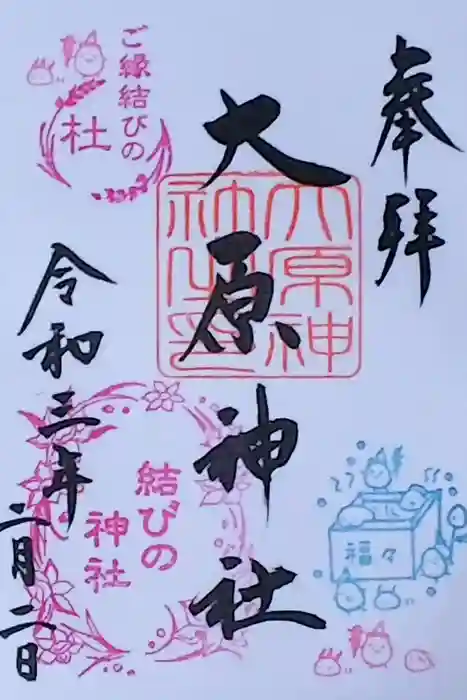 奉拝
大原神社
大原神社之印
ご縁結びの
杜
令和三年
二月二日
結びの
神社
福々